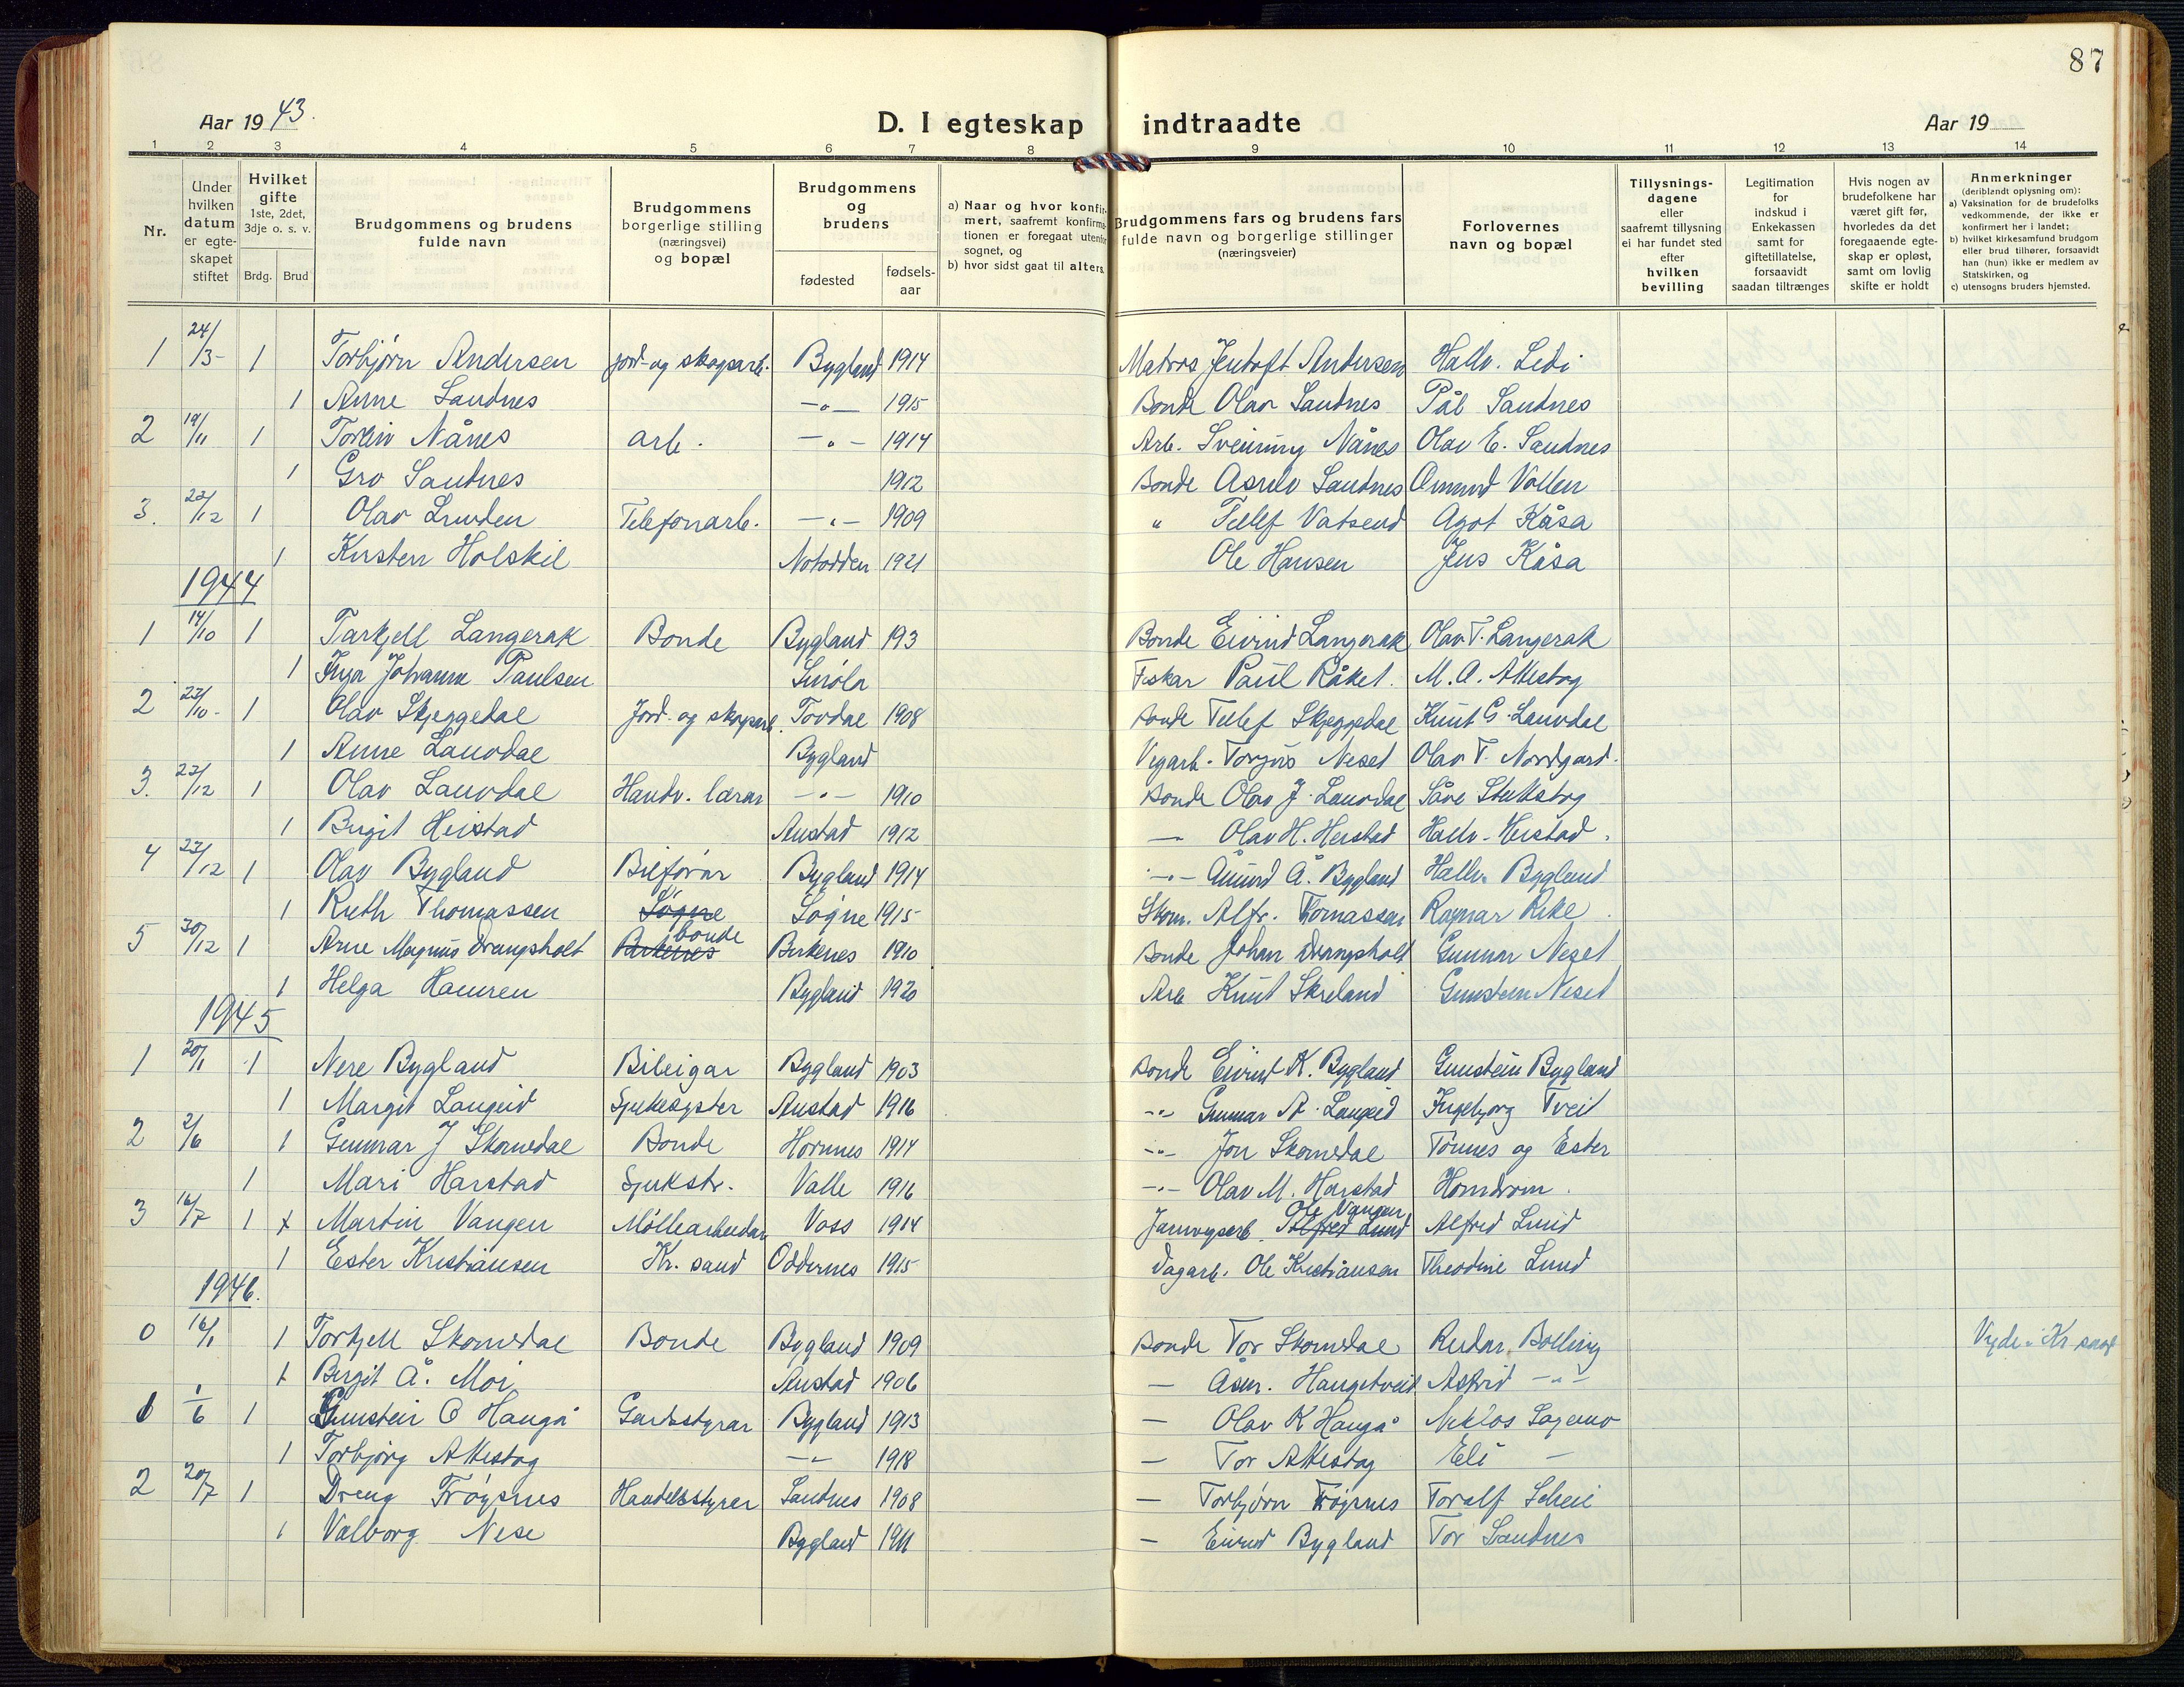 87
Aar 19 43.
D. I egteskap indtraadte
Aar 19
1 2 3 4 5 6 7 8 9 10 11 12 13 14
Nr.
Under hvilken datum er egte-skapet stiftet
Hvilket gifte 1ste, 2det, 3dje o. s. v.
Brdg. Brud
Brudgommens og brudens fulde navn
Brudgommens borgerlige stilling (næringsvei) og bopæl
Brudgommens og brudens
fødested
fødsels-aar
a) Naar og hvor konfir-mert, saafremt konfirma-tionen er foregaat utenfor sognet, og
b) hvor sidst gaat til alters.
Brudgommens fars og brudens fars fulde navn og borgerlige stillinger (næringsveier)
Forlovernes navn og bopæl
Tillysnings-dagene eller saafremt tillysning ei har fundet sted efter hvilken bevilling
Legitimation for indskud i Enkekassen samt for giftetillatelse, forsaavidt saadan tiltrænges
Hvis nogen av brudefolkene har været gift før, hvorledes da det foregaaende egte-skap er opløst, samt om lovlig skifte er holdt
Anmerkninger (deriblandt oplysning om):
a) Vaksination for de brudefolks vedkommende, der ikke er konfirmert her i landet;
b) hvilket kirkesamfund brudgom eller brud tilhører, forsaavidt han (hun) ikke er medlem av Statskirken, og
c) utensogns bruders hjemsted.
1 24/3- 1 Torbjørn Andersen jord- og skogsarb. Bygland 1914 Matros Jentoft Andersen Hallv. Lidi
1 Anne Sandnes -"- 1915 Bonde Olav Sandnes Pål Sandnes
2 19/11 1 Torleiv Nånes arb. -"- 1914 Arb. Sveinung Nånes Olav E. Sandnes
1 Gro Sandnes 1912 Bonde Asulv Sandnes Åmund Vollen
3. 22/12 1 Olav Lunden Telefonarb. -"- 1909 " Tellef Vatsend Agot Kåsa
1 Kirsten Holskil Notodden 1921 Ole Hansen Jens Kåsa
1944
1 14/10 1 Tarkjell Langerak Bonde Bygland 193 Bonde Eivind Langerak Olav T. Langerak
1 Inga Johanne Paulsen Smøla Fiskar Paul Råket. M. A. Åkkestog
2 22/10- 1 Olav Skjeggedal Jord- og skogsarb. Tovdal 1908 Bonde Tellef Skjeggedal Knut G. Lauvdal
1 Anne Lauvdal Bygland Vegarb. Torjus Neset Olav T. Nordgard.
3. 22/12 1 Olav Lauvdal Handv. lærar -"- 1910 Bonde Olav J. Lauvdal Såve Stukstog
1 Birgit Heistad Austad 1912 — Olav H. Heistad Hallv. Heistad.
4 27/12 1 Olav Bygland Bilførar Bygland 1914 -"- Åmund Å. Bygland Hallv. Bygland
1 Ruth Thomassen Søgne Søgne 1915 Skom. Alfr. Tomassen Ragnar Rike
5 30/12 1 Arne Magnus Drangsholt Birkenes bonde Birkenes 1910 Bonde Johan Drangsholt Gunnar Neset
1 Helga Hamren Bygland 1920 Arb Knut Skreland Gunstein Neset
1945
1 20/1 1 Nere Bygland Bileigar Bygland 1903 Bonde Eivind K. Bygland Gunstein Bygland
1 Margit Langeid Sjukesyster Austad 1916 -"- Gunnar A. Langeid Ingebjorg Tveit
2 2/6 1 Gunnar J Skomedal Bonde Hornnes 1914 -"- Jon Skomedal Tønnes og Ester
1 Mari Harstad Sjukstr. Valle 1916 -"- Olav M. Harstad Homdrom.
3 16/7 1 x Martin Vangen Møllearbeidar Voss 1914 Jarnvegsarb. Alfred Lund Ole Vangen Alfred Lund
1 Ester Kristiansen Kr. sand Oddernes 1915 Dagarb. Ole Kristiansen Theodine Lund
1946.
0 16/1 1 Torkjell Skomedal Bonde Bygland 1909 Bonde Tor Skomedal Reidar Bolling Vigde i Kr sand
1 Birgit Å. Moi Austad 1906 — Åsm. Haugetveit Astrid -"-
1 1/6 1 Gunstein O Haugå Gardsstyrar Bygland 1913 — Olav K Haugå Niklos Lagemo
1 Torbjørg Åkkestog -"- 1918 — Tor Åkkestog Eli —
2 20/7 1 Dreng Frøysnes Handelsstyrer Sandnes 1908 — Torbjørn Frøysnes Toralf Scheie
1 Valborg Nese Bygland 1911 — Eivind Bygland Tor Sandnes